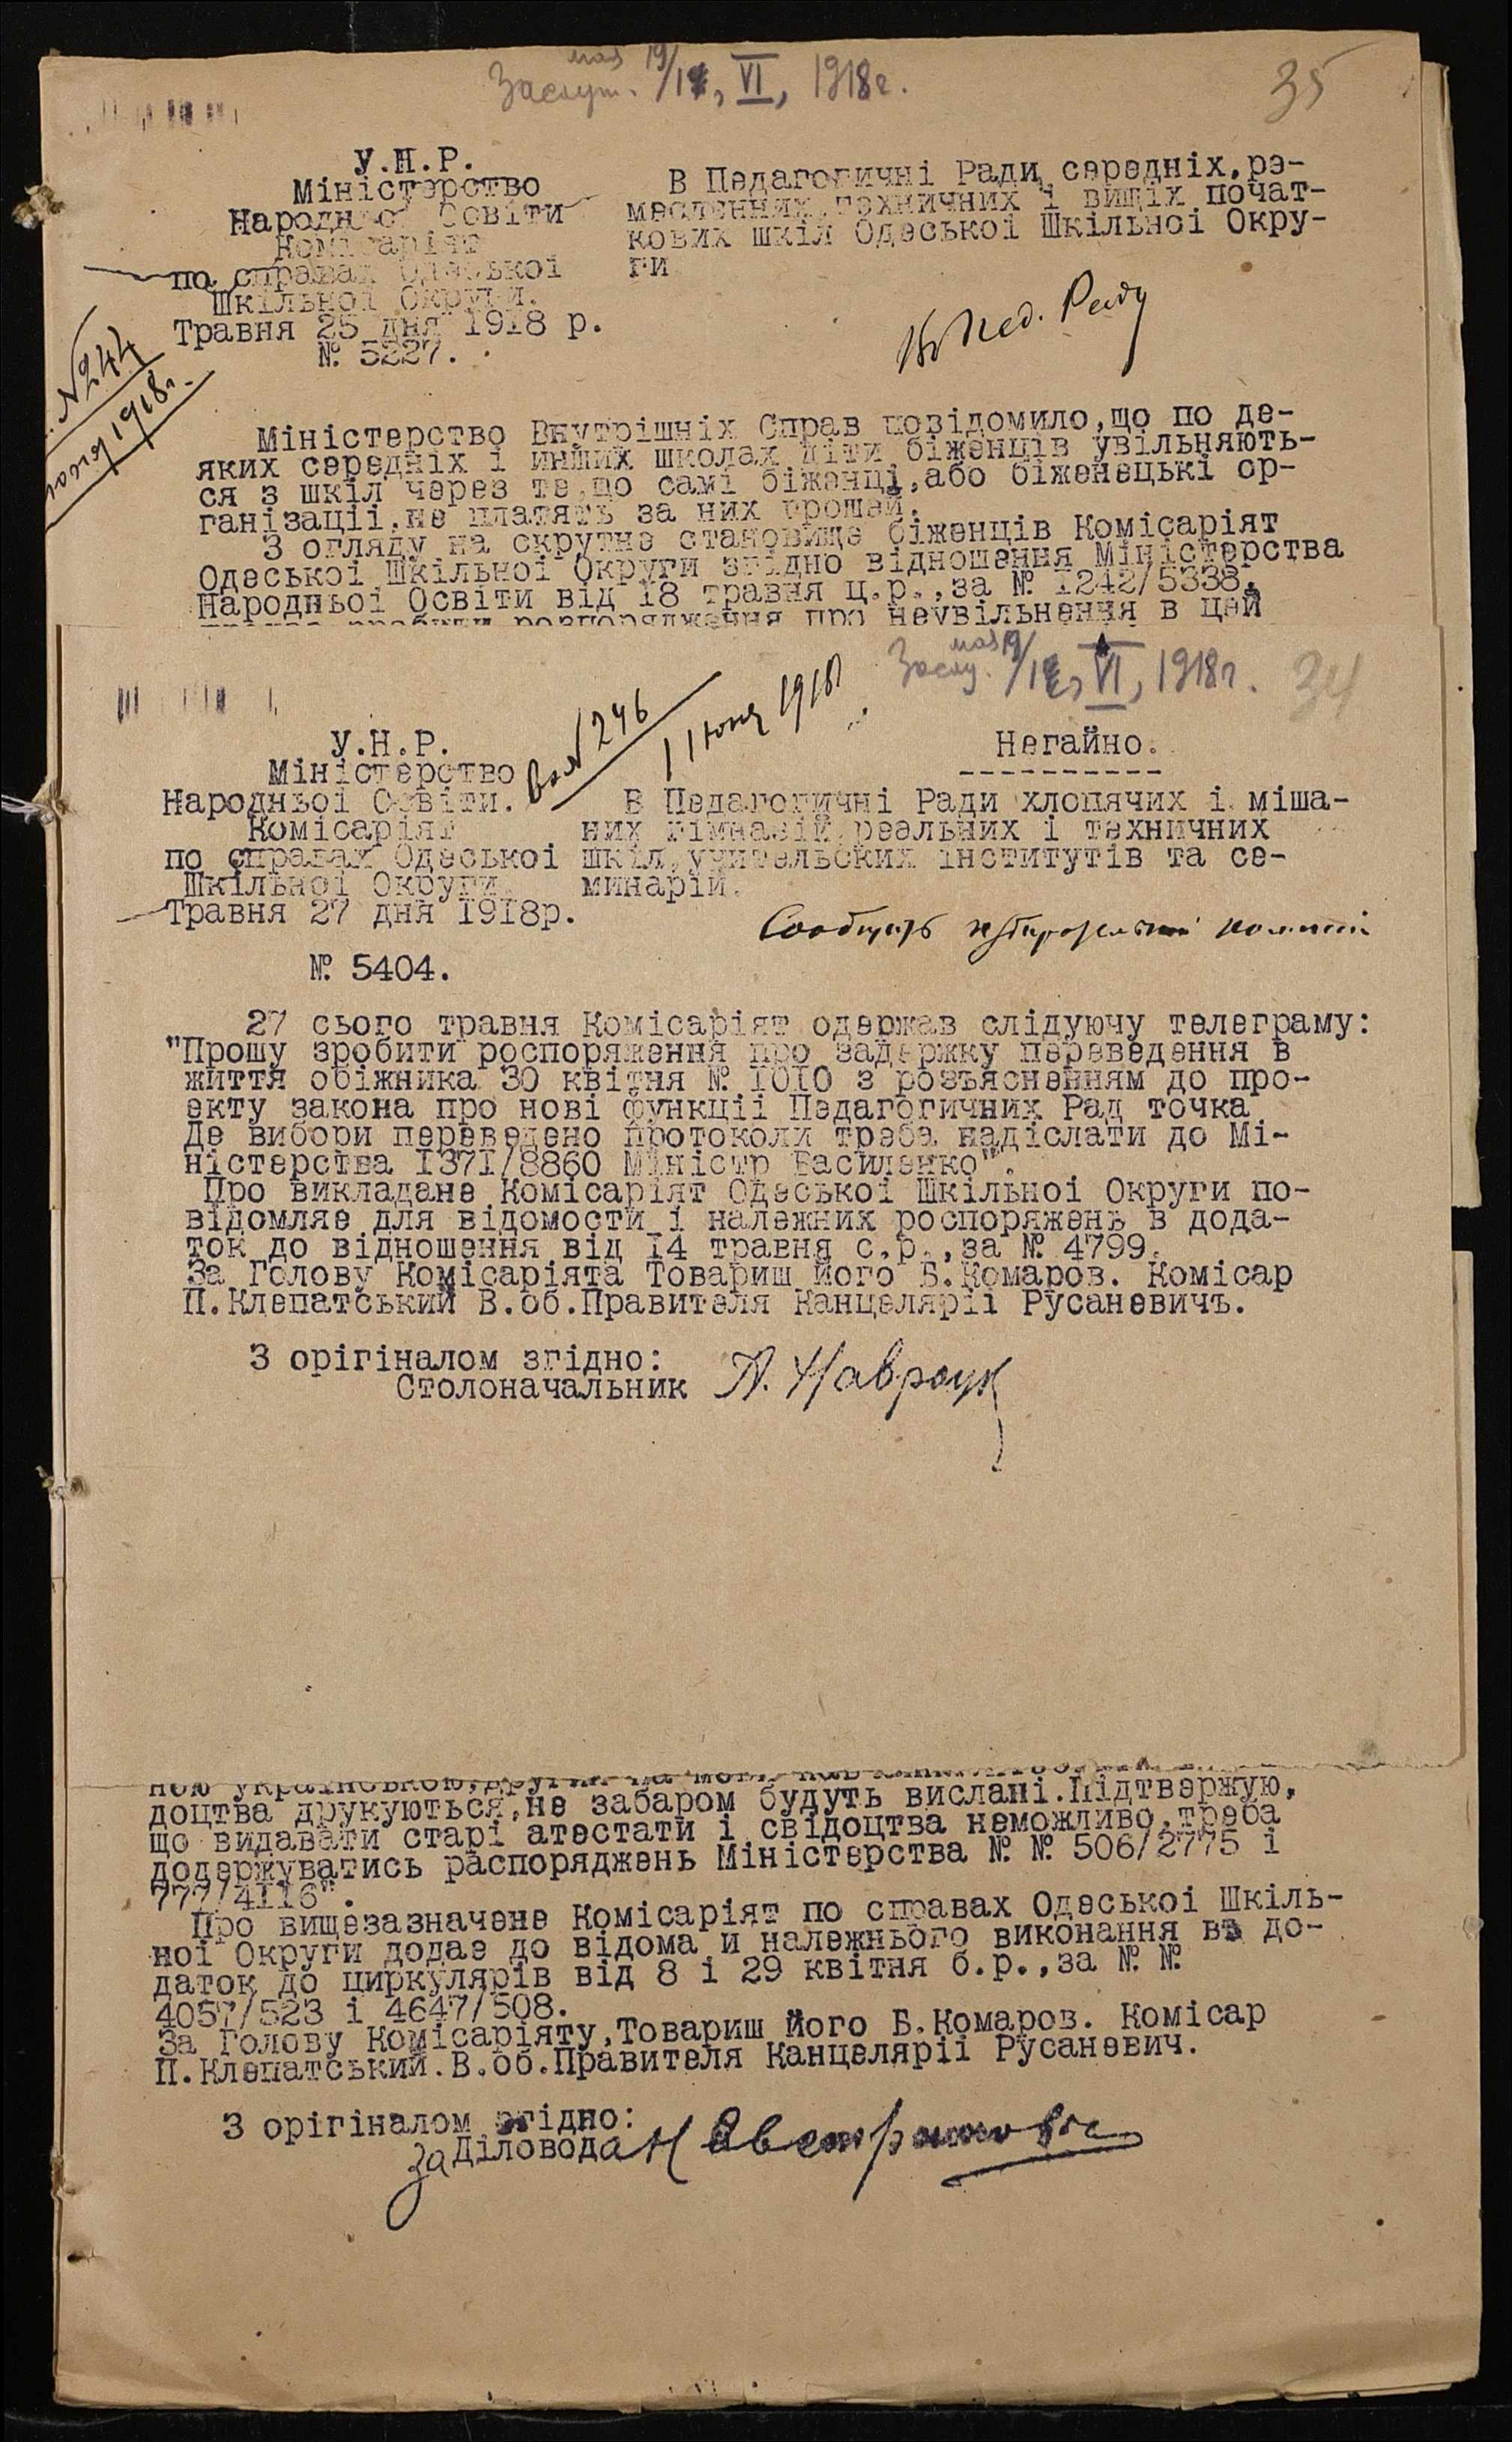 мая 19/
Заслуш. /1 , VI, 1918г.
35
У.Н.Р.
Міністерство
Народньоі Освіти
Комісаріят
по справах Одеськоі
Шкільноі Округи.
Травня 25 дня 1918 р.
№ 5227.
В Педагогичні Ради середніх, ре-
месленних, техничних і вищіх почат-
кових шкіл Одеськоі Шкільноі Окру-
ги
В Пед. Раду
№244
1918г.
Міністерство Внутрішніх Справ повідомило, що по де-
яких середніх і инших школах діти біженців увільняють-
ся з шкіл через те, що самі біженці, або біженецькі ор-
ганізаціі, не платять за них грошей.
З огляду на скрутне становище біженців Комісаріят
Одеськоі Шкільноі Округи згідно відношення Міністерства
Народньоі Освіти від 18 травня ц.р., за № 1242/5338,
зробити розпорядження про неувільнення в цей
мая 19/
Заслу. /1 , VI, 1918г.
34
Вх №246
11 юня 1918
У.Н.Р.
Міністерство
Народньоі Освіти.
Комісаріят
по справах Одеськоі
Шкільноі Округи.
Травня 27 дня 1918р.
№ 5404.
Негайно.
----------
В Педагогичні Ради хлопячих і міша-
них гімназій, реальних і техничних
шкіл, учительских інститутів та се-
минарій.
Сообщить
27 сього травня Комісаріят одержав слідуючу телеграму:
"Прошу зробити роспоряження про задержку переведення в
життя обіжника 30 квітня № 1010 з розъясненням до про-
екту закона про нові функціі Педагогичних Рад точка
Де вибори переведено протоколи треба надіслати до Мі-
ністерства 1371/8860 Міністр Василенко".
Про викладане Комісаріят Одеськоі Шкільноі Округи по-
відомляе для відомости і належних роспоряжень в дода-
ток до відношення від 14 травня с.р., за № 4799.
За Голову Комісаріята Товариш його Б.Комаров. Комісар
П.Клепатський В.об.Правителя Канцеляріі Русаневичъ.
З орігіналом згідно:
Столоначальник
ною українською, други
доцтва друкуються, не забаром будуть вислані. Підтвержую,
що видавати старі атестати і свідоцтва неможливо, треба
додержуватись распоряджень Міністерства № № 506/2775 і
777/4116".
Про вищезазначене Комісаріят по справах Одеськоі Шкіль-
ноі Округи додае до відома и належнього виконання въ до-
даток до циркулярів від 8 і 29 квітня б.р., за № №
4057/523 і 4647/508.
За Голову Комісаріяту, Товариш його Б.Комаров. Комісар
П.Клепатський. В.об.Правителя Канцеляріі Русаневич.
З орігіналом згідно:
За Діловода